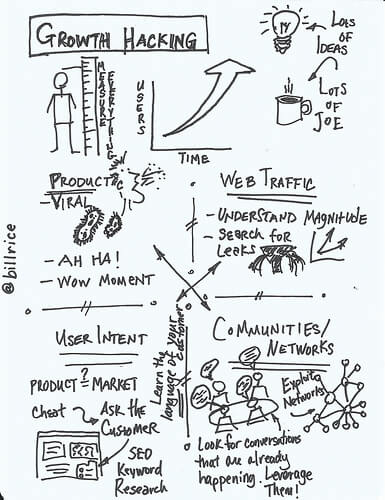 GROWTH HACKING
LOTS
OF
IDEAS
LOTS
OF
JOE
MEASURE
EVERYTHING
USERS
TIME
PRODUCT
- VIRAL
- AH HA!
- WOW MOMENT
WEB TRAFFIC
- UNDERSTAND MAGNITUDE
- SEARCH FOR
LEAKS
@billrice
USER INTENT
PRODUCT ?= MARKET
Cheat
ASK THE
CUSTOMER
SEO
Keyword
Research
Learn the
language of your
customer
COMMUNITIES/
NETWORKS
Exploit
Networks
Look for conversations
that are already
happening. Leverage
Them!